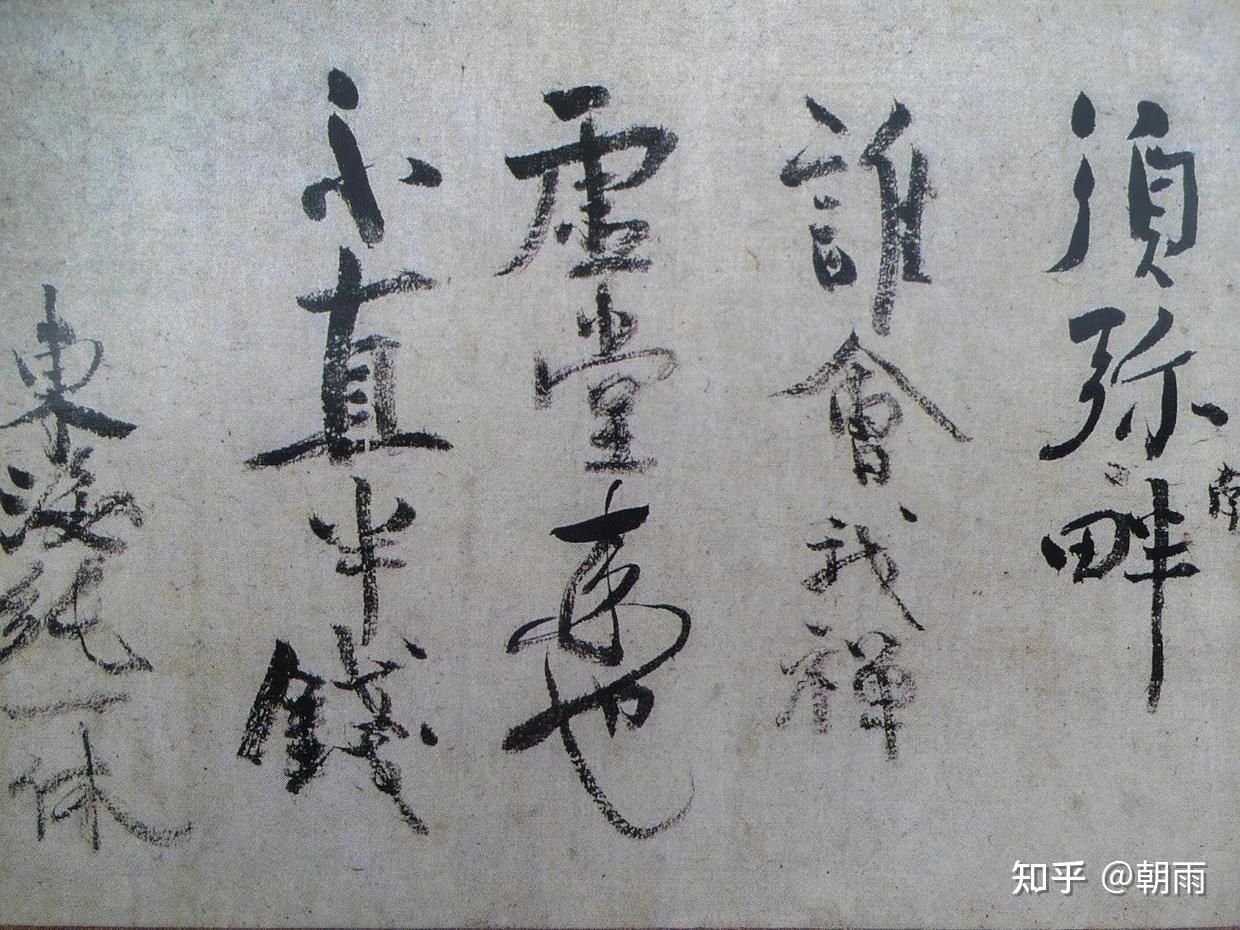 須弥畔
南
誰會我禅
虚堂来也
不直半錢
東海純一休
知乎 @朝雨